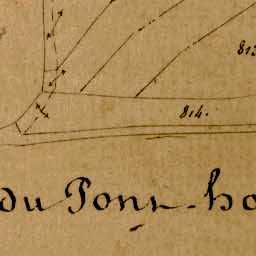 813
814.
du Pont-ho